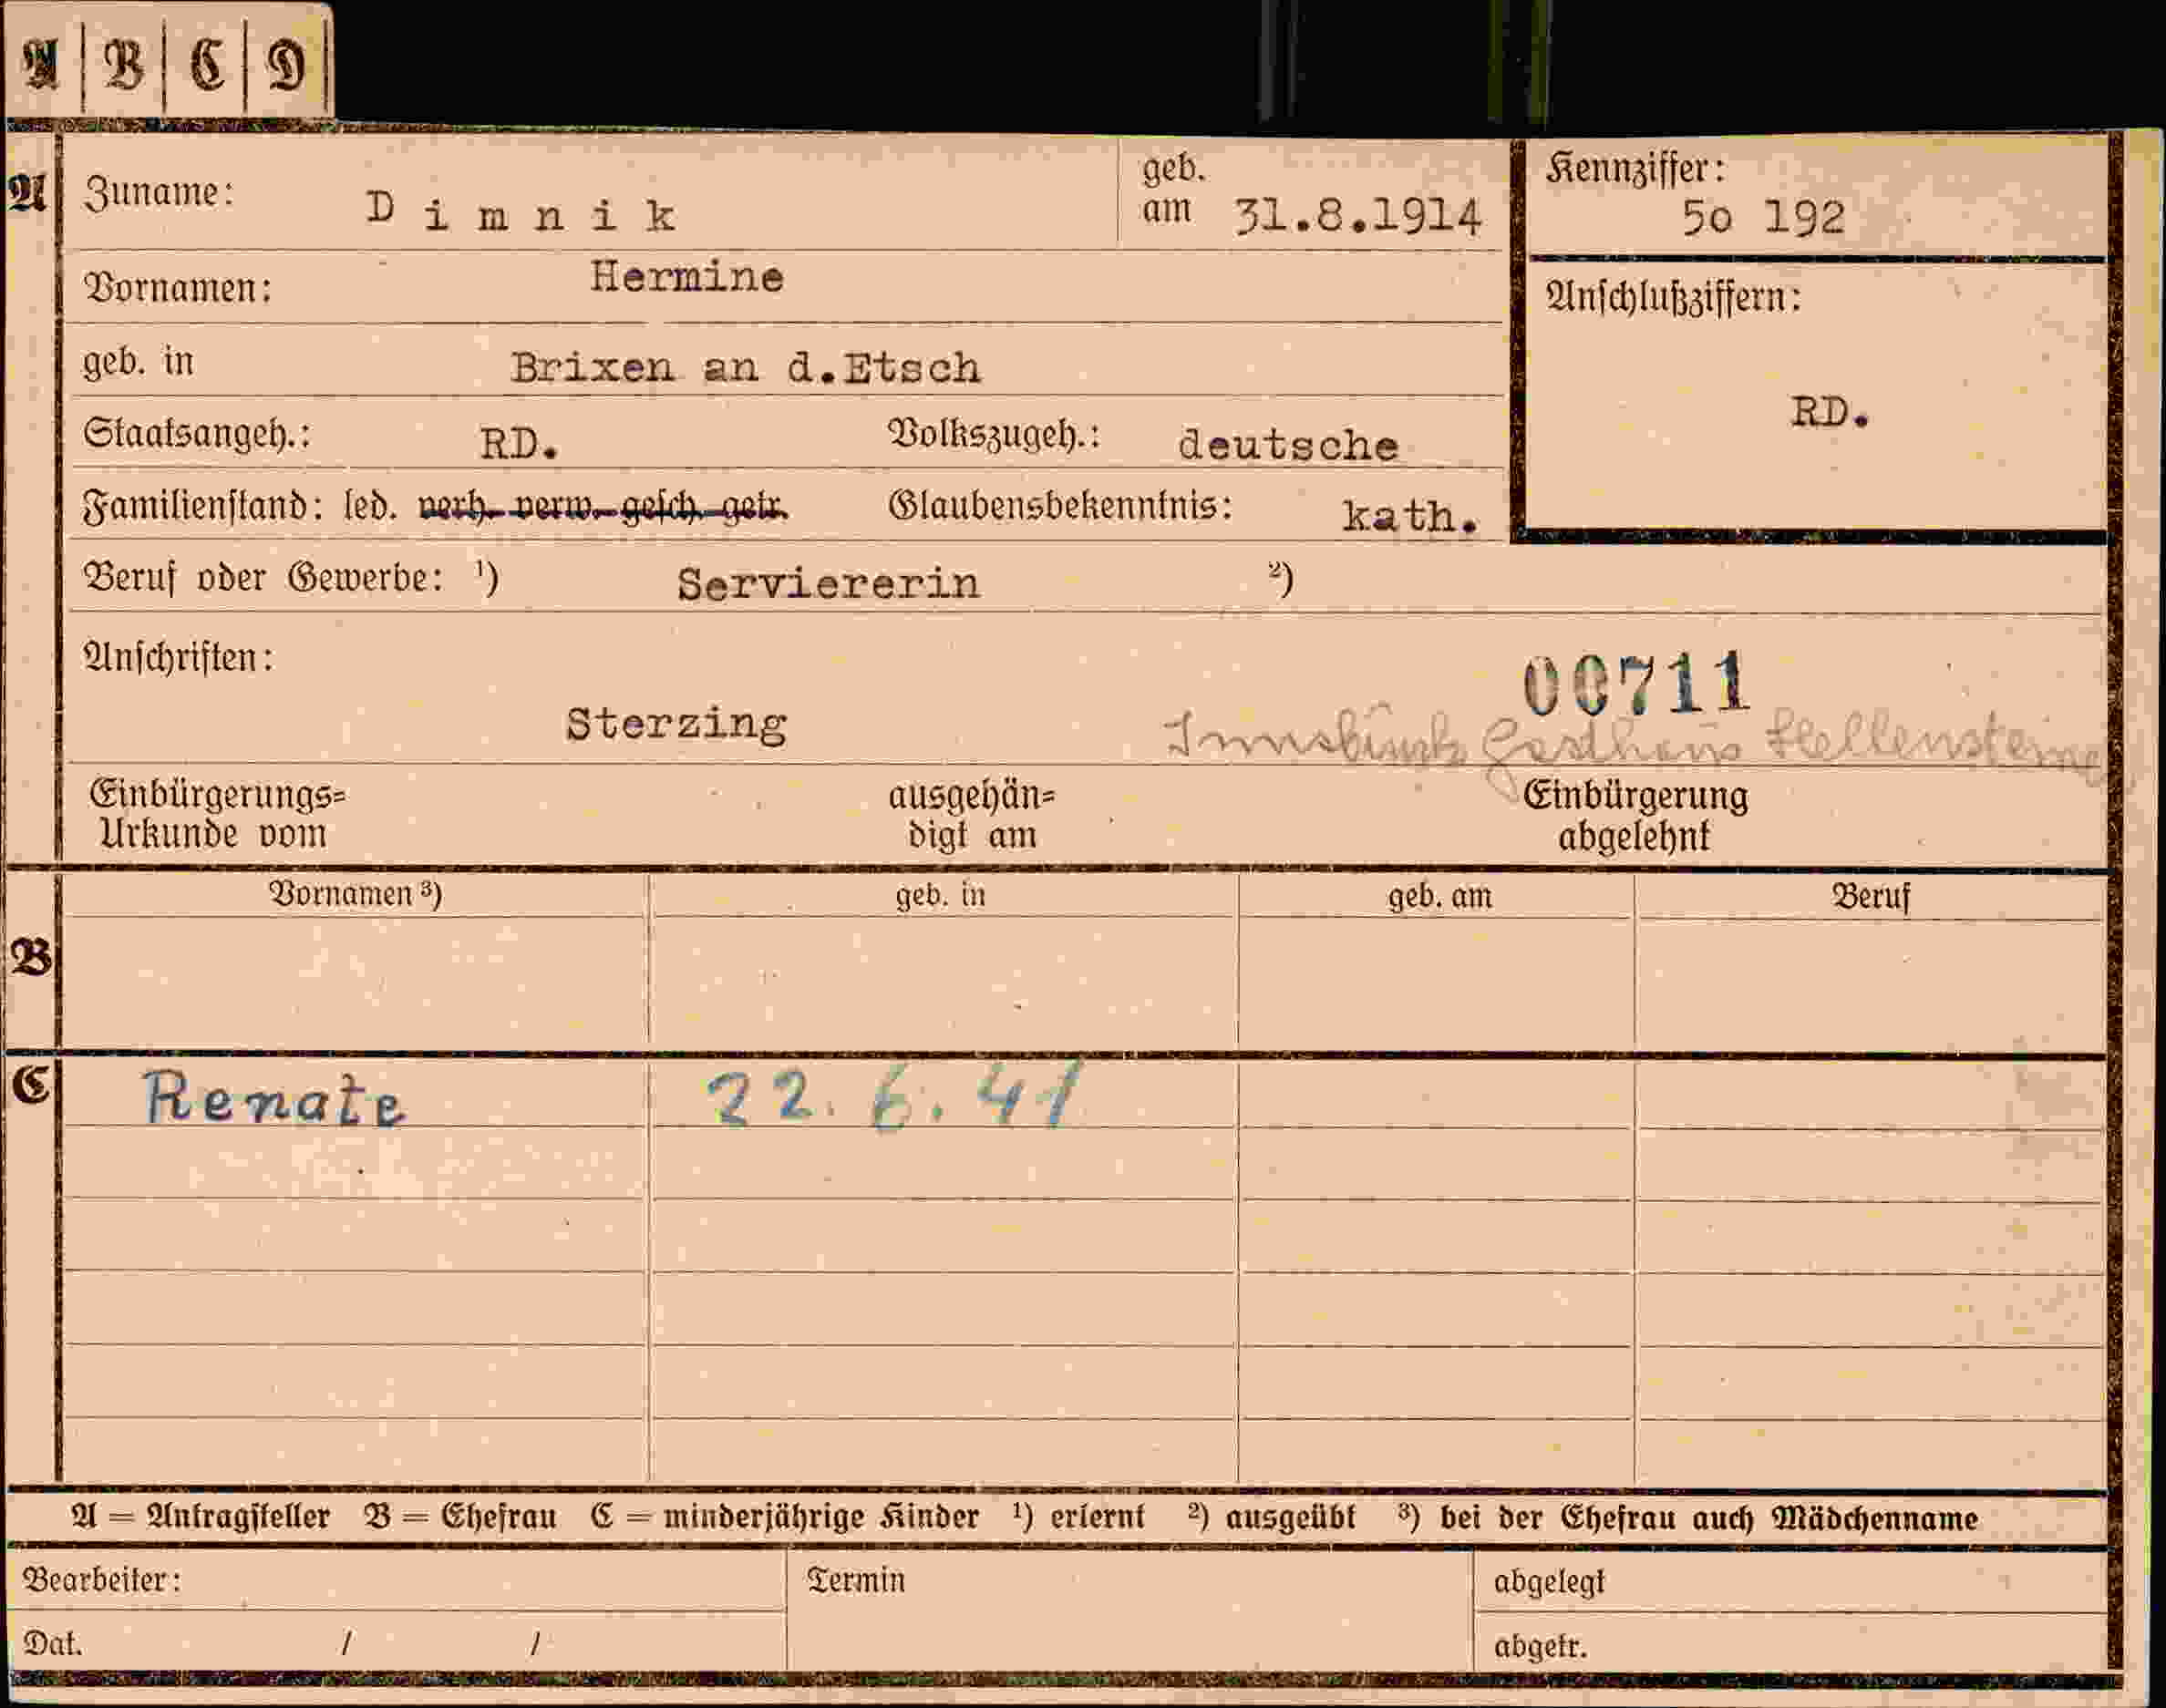 A B C D
A Zuname: Dimnik geb. am 31.8.1914 Kennziffer: 50 192
Vornamen: Hermine Anschlußziffern:
geb. in Brixen an d.Etsch
RD.
Staatsangeh.: RD. Volkszugeh.: deutsche
Familienstand: led. verh. verw. gesch. getr. Glaubensbekenntnis: kath.
Beruf oder Gewerbe: ¹) Serviererin ²)
Anschriften: 00711
Sterzing Innsbruck Gasthaus
Einbürgerungs= ausgehän= Einbürgerung
Urkunde vom digt am abgelehnt
Vornamen ³) geb. in geb. am Beruf
B
C Renate 22. 6. 41
A = Antragsteller B = Ehefrau C = minderjährige Kinder ¹) erlernt ²) ausgeübt ³) bei der Ehefrau auch Mädchenname
Bearbeiter: Termin abgelegt
Dat. / / abgetr.